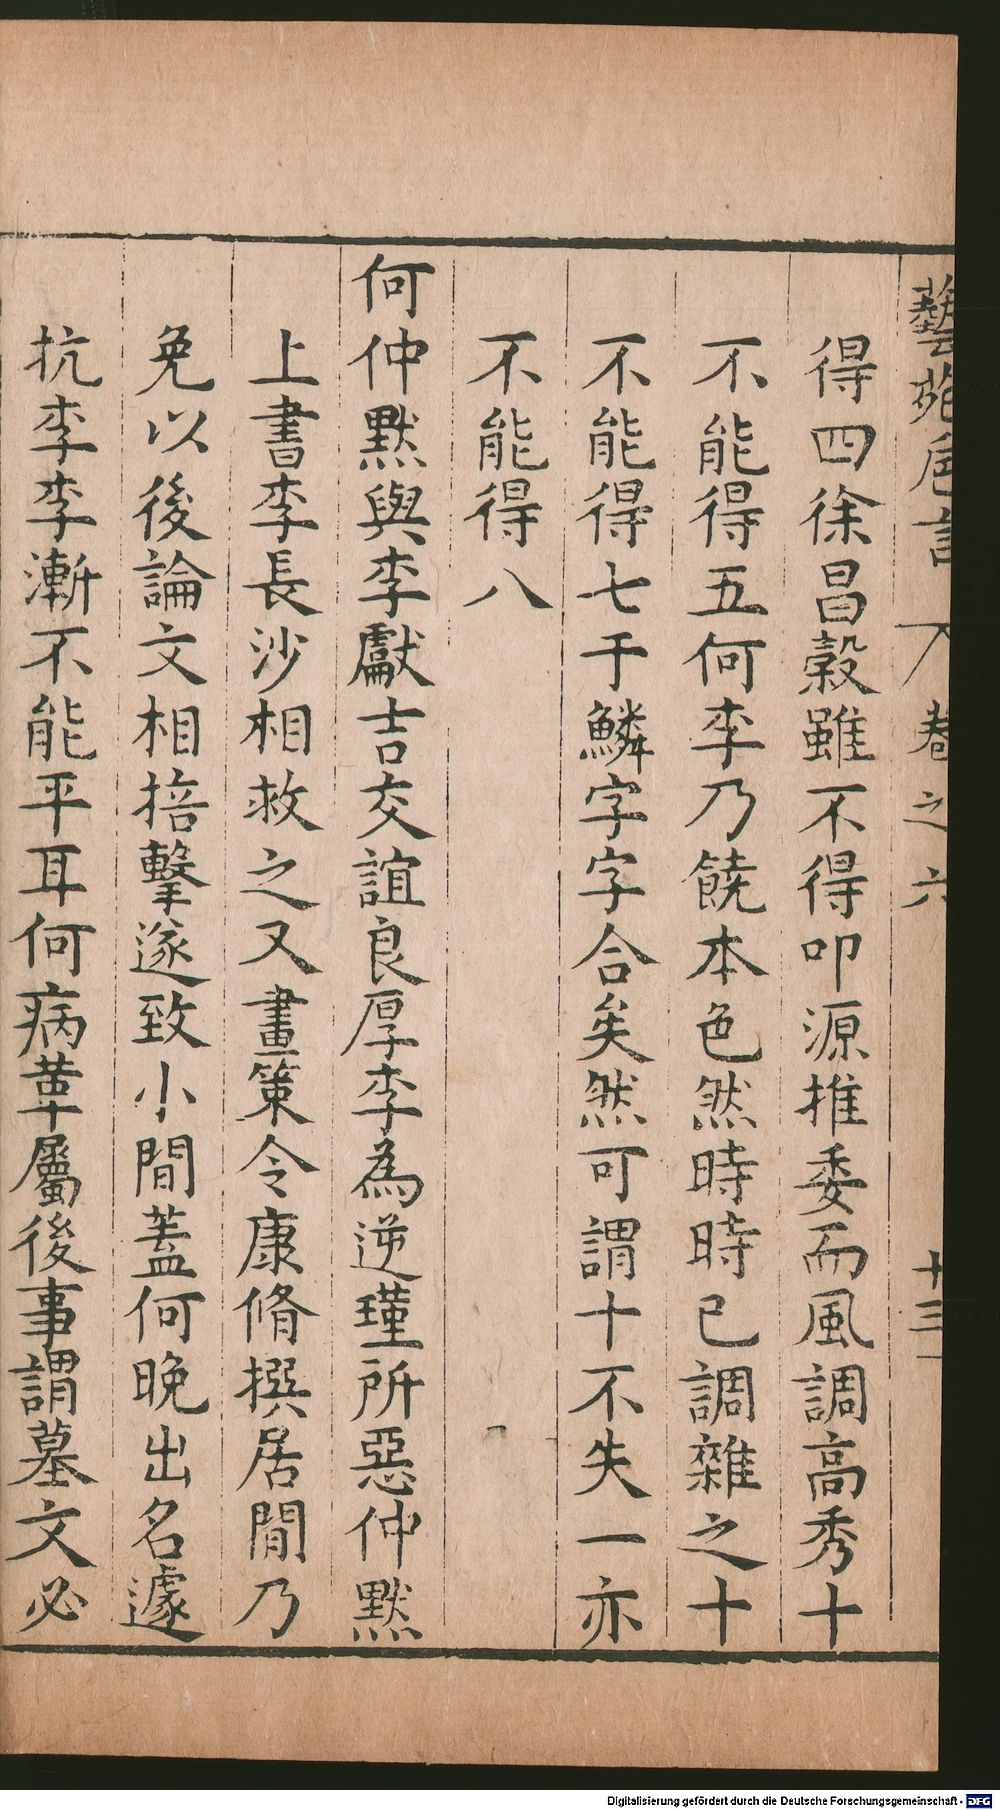 藝苑卮言 卷之六 十三
得四徐昌穀雖不得叩源推委而風調高秀十
不能得五何李乃饒本色然時時已調雜之十
不能得七于鱗字字合矣然可謂十不失一亦
不能得八
何仲默與李獻吉交誼良厚李為逆瑾所惡仲默
上書李長沙相救之又畫策令康脩撰居間乃
免以後論文相掊擊遂致小間蓋何晚出名遽
抗李李漸不能平耳何病革屬後事謂墓文必
Digitalisierung gefördert durch die Deutsche Forschungsgemeinschaft - DFG